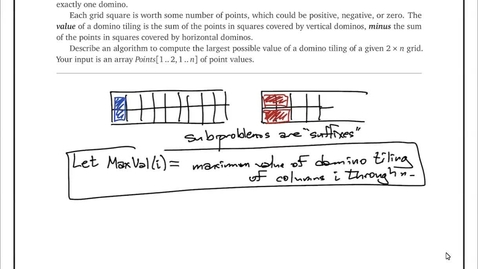 exactly one domino.
Each grid square is worth some number of points, which could be positive, negative, or zero. The
value of a domino tiling is the sum of the points in squares covered by vertical dominos, minus the sum
of the points in squares covered by horizontal dominos.
Describe an algorithm to compute the largest possible value of a domino tiling of a given 2 × n grid.
Your input is an array Points[1 .. 2, 1 .. n] of point values.
subproblems are "suffixes"
Let MaxVal(i) = maximum value of domino tiling
of columns i through n.